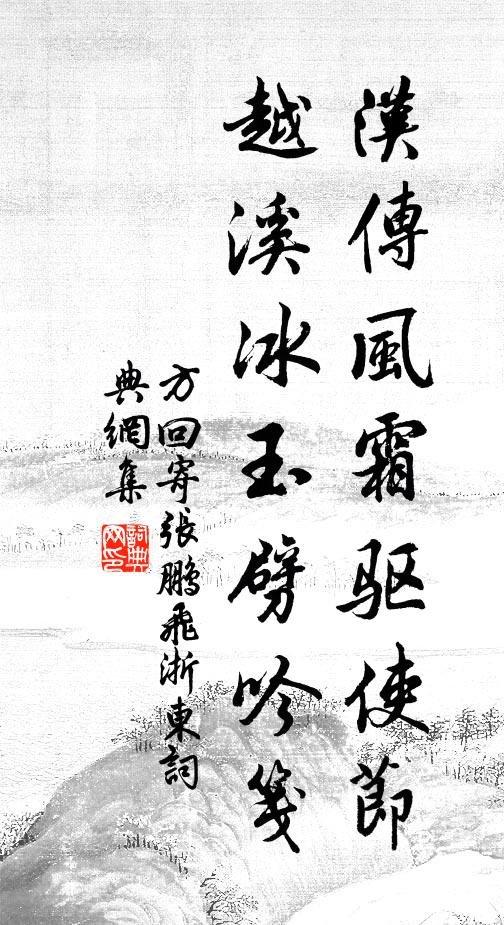 漢傳風霜驱使節
越溪冰玉劈吟箋
方回寄張鵬飛浙東詞
典網集
詞典
网印